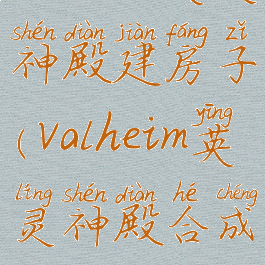 shén diàn jiàn fáng zǐ
神殿建房子
yīng
(Valheim英
líng shén diàn hé chéng
灵神殿合成